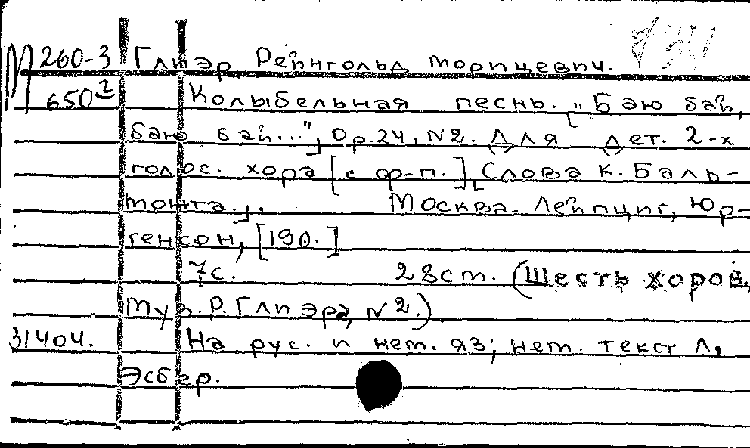 М 260-3 Глиэр, Рейнгольд Морицевич.
650² Колыбельная песнь. ["Баю бай,
баю бай..."], Op. 24, N2. Для дет. 2-х
голос. хора [с ф-п.], [Слова К. Баль-
монта]. Москва-Лейпциг, Юр-
генсон, [190.]
7с. 28cm. (Шесть хоров,
муз. Р. Глиэра, N2.)
31404. На рус. и нем. яз; нем. текст Л.
Эсбер.